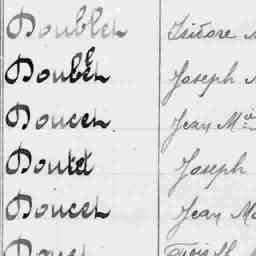 Doublet Isidore
Doublet Joseph
Doucet Jean M
Doutet Joseph
Doucet Jean